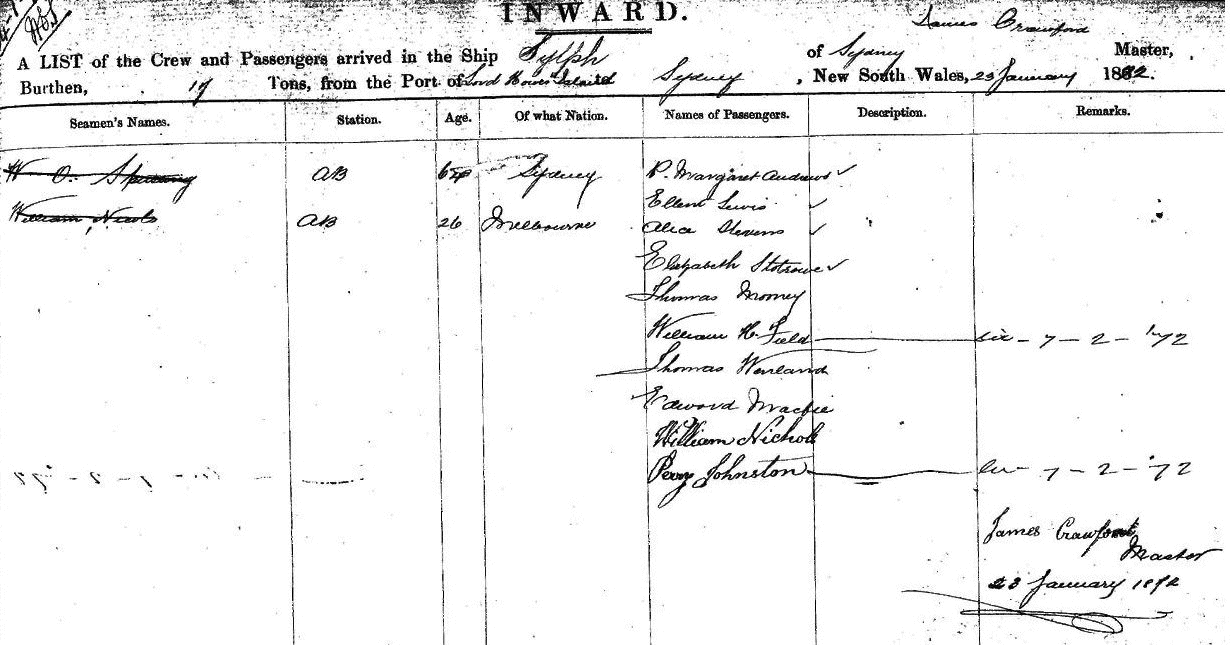 INWARD.
James Crawford
A LIST of the Crew and Passengers arrived in the Ship Sylph of Sydney Master,
Burthen, 17 Tons, from the Port of Lord Howes Island Sydney, New South Wales, 23 January 1872.
Seamen's Names. Station. Age. Of what Nation. Names of Passengers. Description. Remarks.
W O. AB Sydney P. Margaret Andrews ✓
Ellen Lewis ✓
William Nicols AB 26 Melbourne Alice Stevens ✓
Elizabeth ✓
Thomas Mooney
William H. Field 7 - 2 - '72
Thomas
Edward Mackie
William Nicholl
Percy Johnston 7 - 2 - '72
James Crawford
Master
23 January 1872